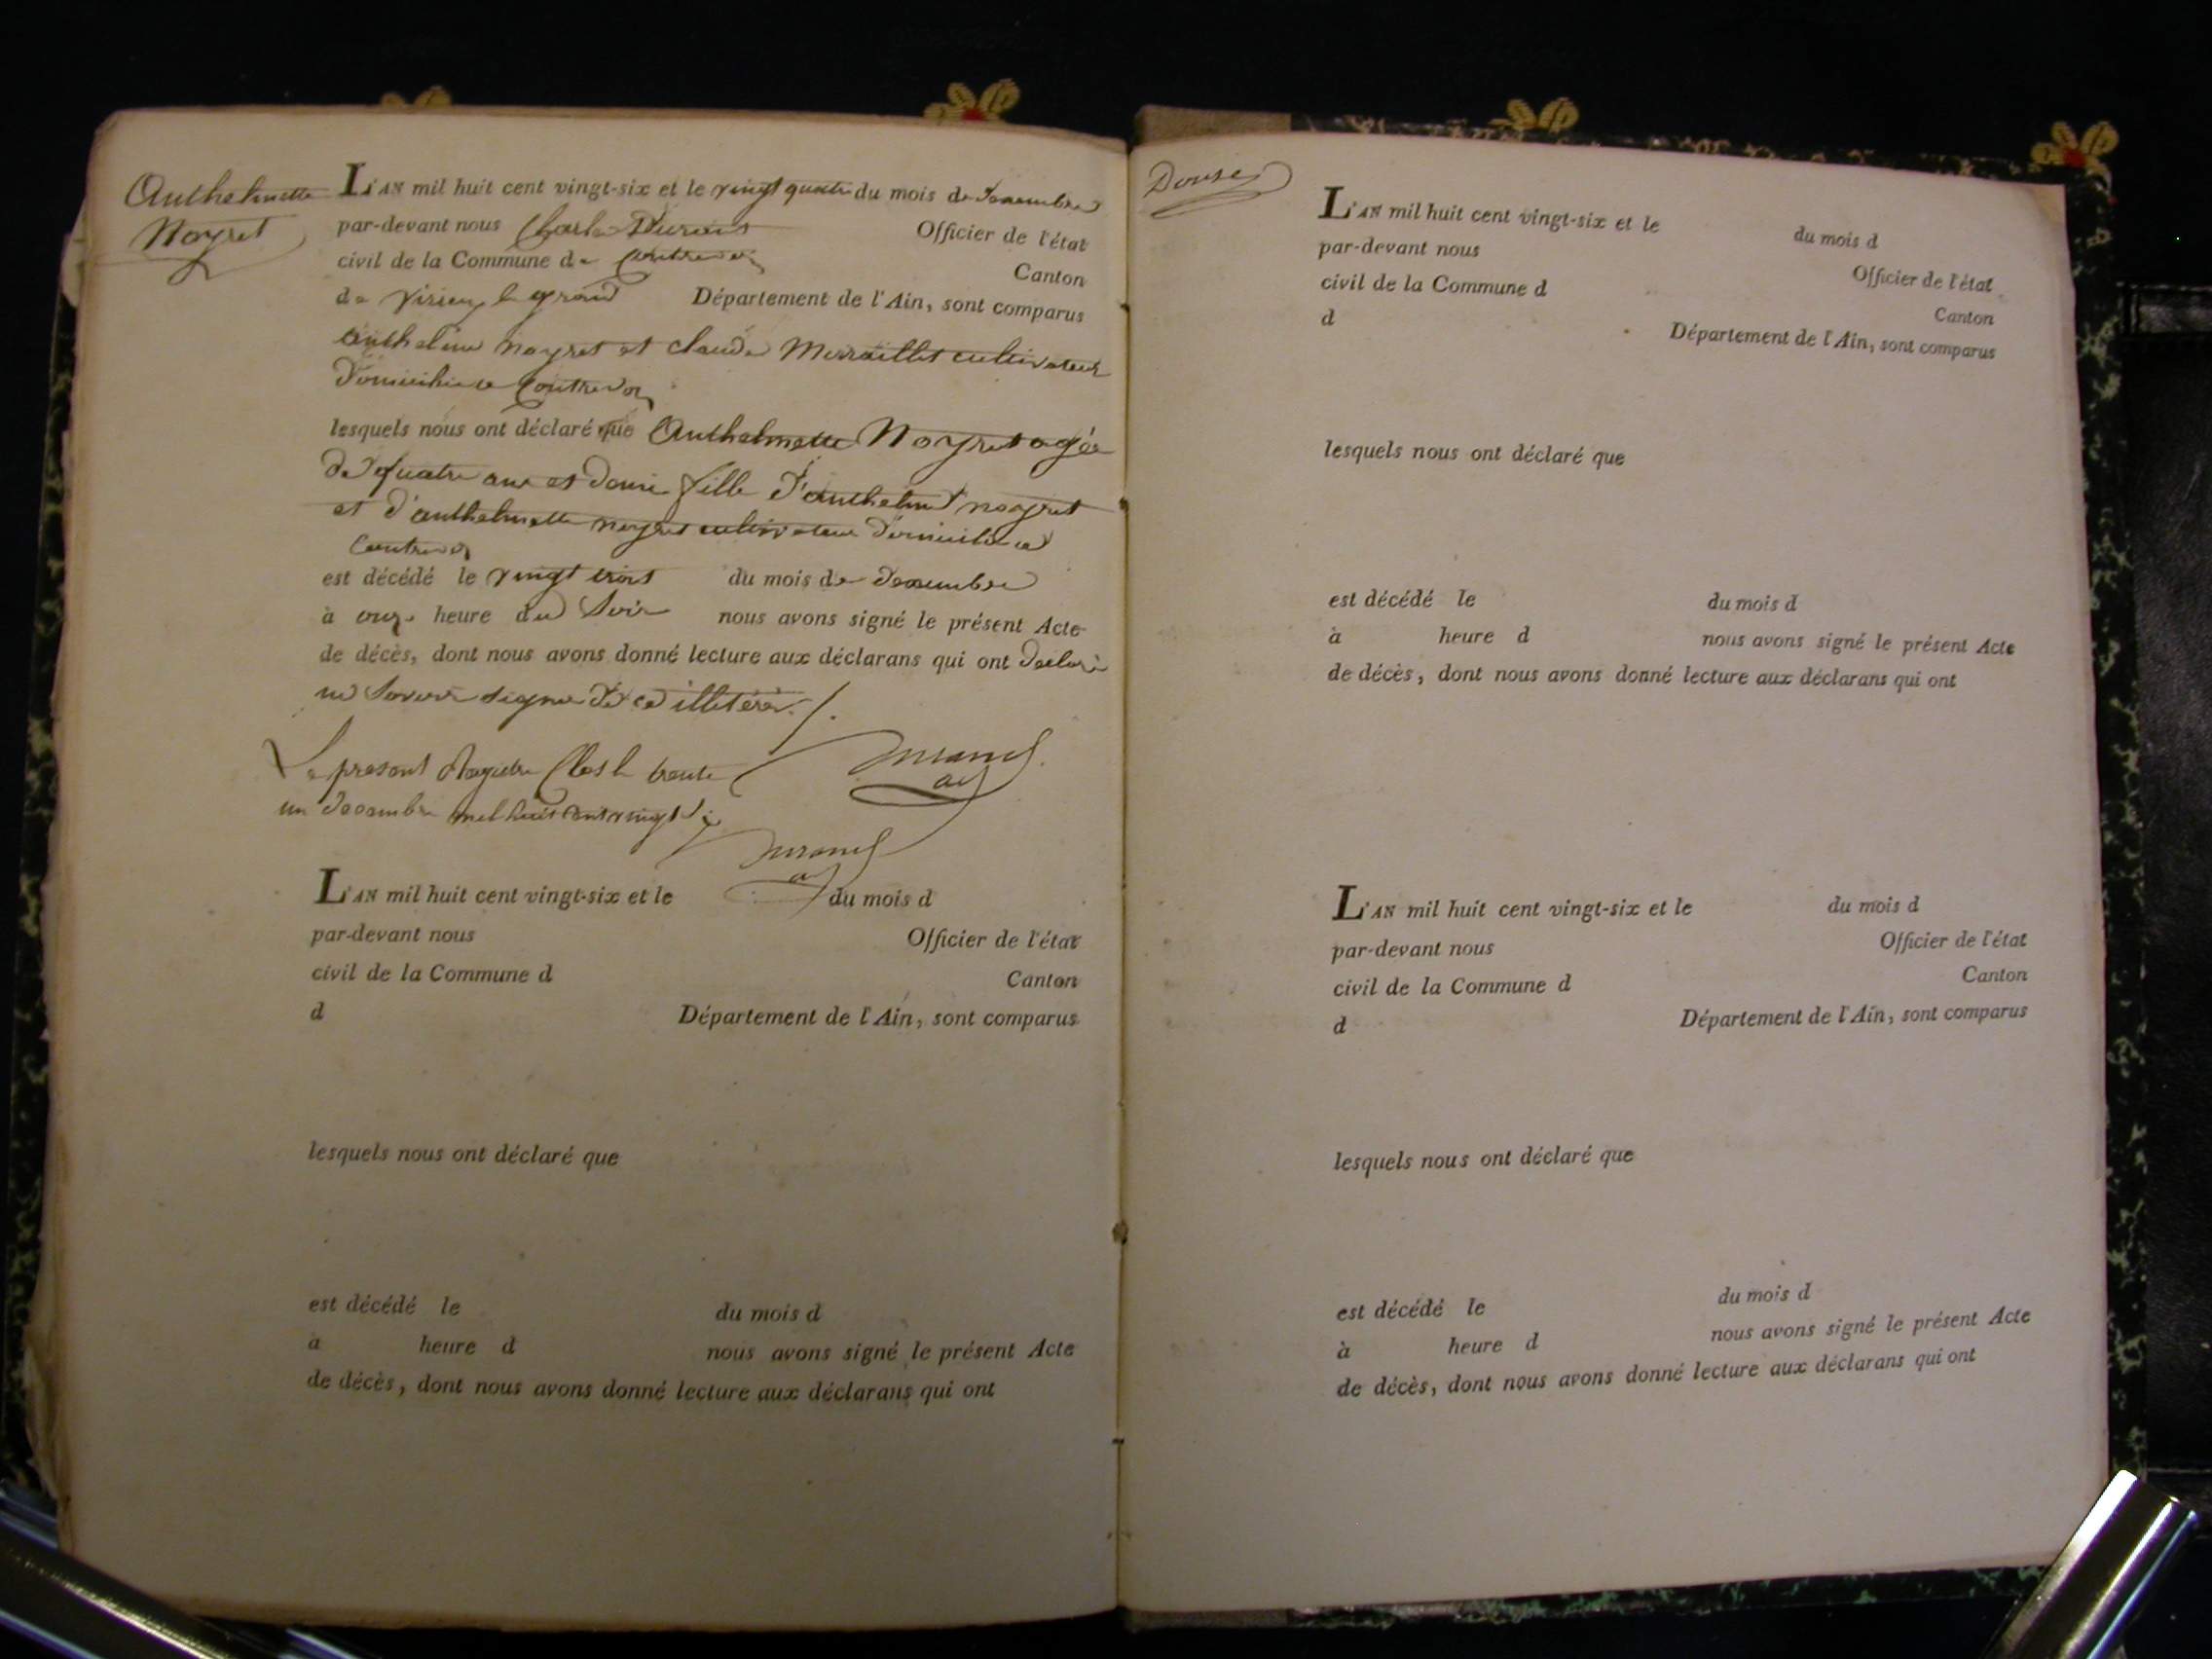 Anthelmette
Noyret
L'AN mil huit cent vingt-six et le vingt quatre du mois de Decembre
par-devant nous Charles Officier de l'état
civil de la Commune de Contrevoz Canton
de Virieu le grand Département de l'Ain, sont comparus
anthelme noyret et claude cultivateur
Domicilie a Contrevoz
lesquels nous ont déclaré que Anthelmette Noyret agée
De quatre ans et Demi fille D'anthelme noyret
et d'anthelmette noyret cultivateur Domicilie a
Contrevoz
est décédé le vingt trois du mois de Decembre
à onze heure du Soir nous avons signé le présent Acte
de décès, dont nous avons donné lecture aux déclarans qui ont Declaré
ne Savoir signer De ce illitéré
Le present Registre Clos le trente
un Decembre mil huit cent vingt Six
L'AN mil huit cent vingt-six et le du mois d
par-devant nous Officier de l'état
civil de la Commune d Canton
d Département de l'Ain, sont comparus
lesquels nous ont déclaré que
est décédé le du mois d
à heure d nous avons signé le présent Acte
de décès, dont nous avons donné lecture aux déclarans qui ont
Douse
L'AN mil huit cent vingt-six et le du mois d
par-devant nous Officier de l'état
civil de la Commune d Canton
d Département de l'Ain, sont comparus
lesquels nous ont déclaré que
est décédé le du mois d
à heure d nous avons signé le présent Acte
de décès, dont nous avons donné lecture aux déclarans qui ont
L'AN mil huit cent vingt-six et le du mois d
par-devant nous Officier de l'état
civil de la Commune d Canton
d Département de l'Ain, sont comparus
lesquels nous ont déclaré que
est décédé le du mois d
à heure d nous avons signé le présent Acte
de décès, dont nous avons donné lecture aux déclarans qui ont